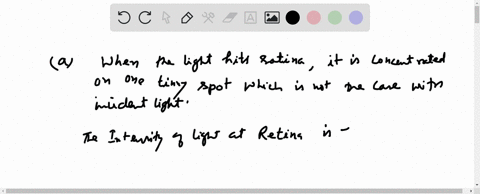 (a) When the light hits Retina, it is concentrated
on one tiny spot which is not the case with
incident light.
The Intensity of light at Retina is -